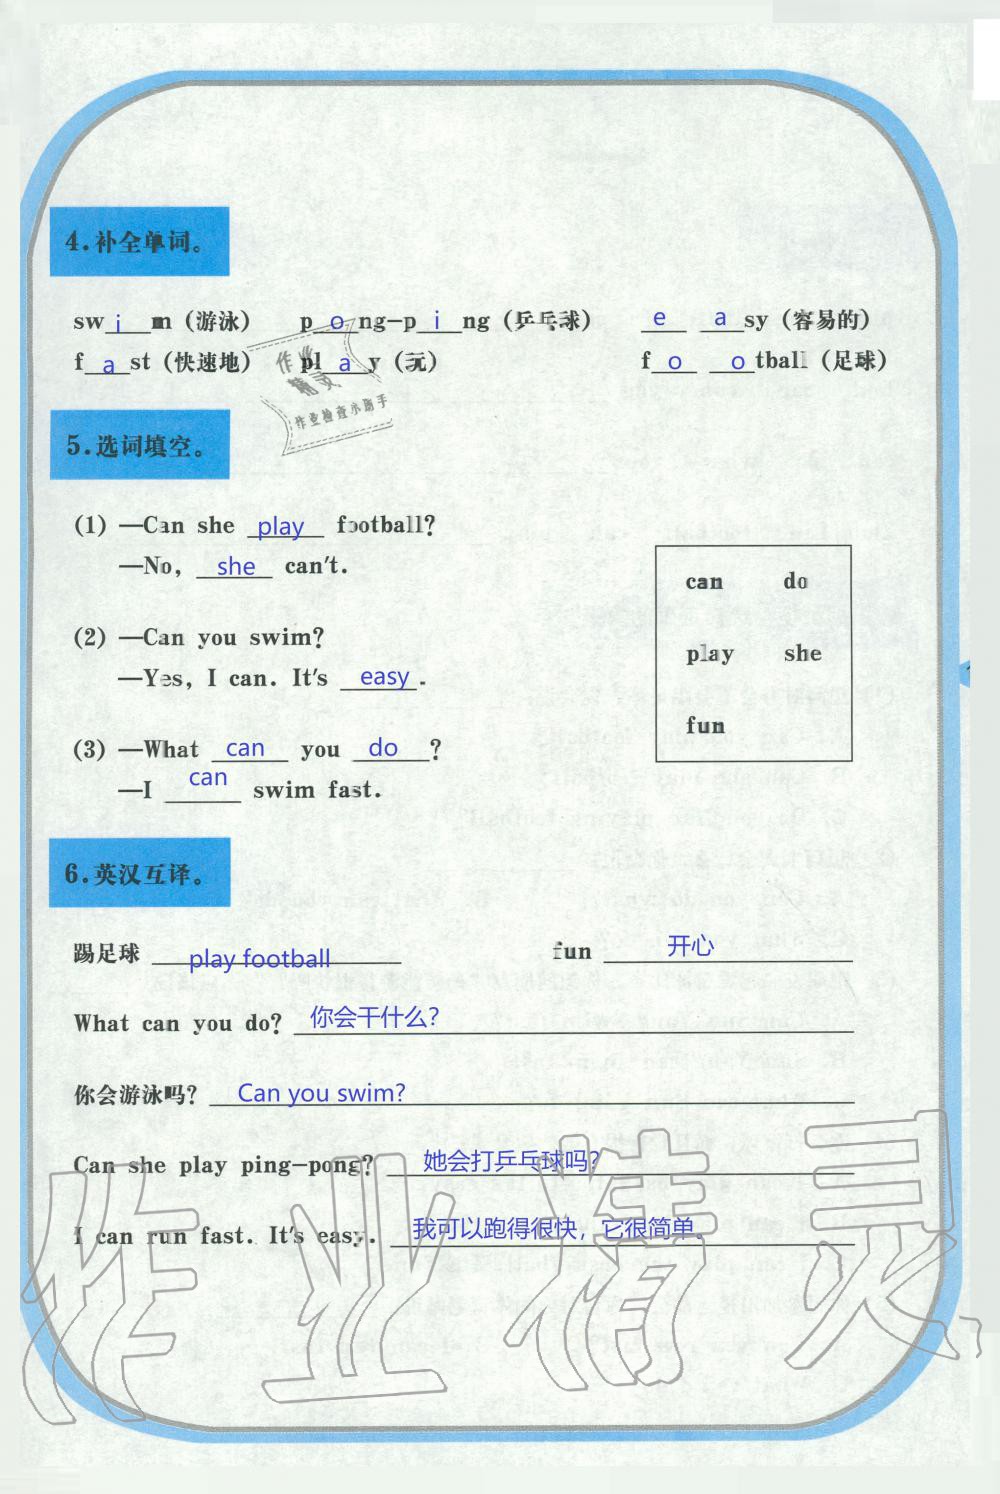 4.补全单词。
sw i m（游泳） p o ng-p i ng（乒乓球） e a sy（容易的）
f a st（快速地） pl a y（玩） f o o tball（足球）
作业
精灵
作业检查小助手
5.选词填空。
(1) —Can she play football?
—No, she can't.
(2) —Can you swim?
—Yes, I can. It's easy.
(3) —What can you do?
—I can swim fast.
can do
play she
fun
6.英汉互译。
踢足球 play football fun 开心
What can you do? 你会干什么?
你会游泳吗? Can you swim?
Can she play ping-pong? 她会打乒乓球吗?
I can run fast. It's easy. 我可以跑得很快，它很简单。
作业精灵